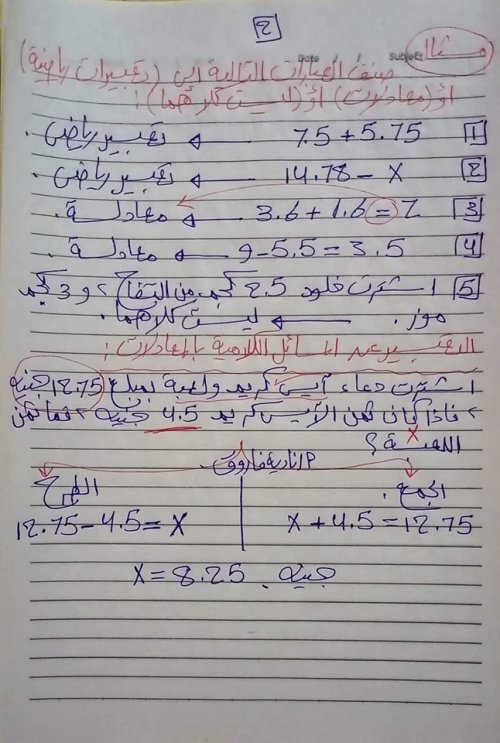 2
مثال Date / / Subject
صنف العبارات التالية إلى (تعبيرات رياضية)
أو (معادلات) أو (ليست كلاهما) :
1 7.5 + 5.75 ← تعبير رياضى .
2 14.78 - x ← تعبير رياضى .
3 3.6 + 1.6 = z ← معادلة .
4 9 - 5.5 = 3.5 ← معادلة .
5 اشترت خلود 2.5 كجم من التفاح ، و 3 كجم
موز . ← ليست كلاهما .
التعبير عن المسائل الكلامية بالمعادلات :
اشترت دعاء آيس كريم ولعبة بمبلغ 12.75 جنيه
، فإذا كان ثمن الآيس كريم 4.5 جنيه ، فما ثمن
اللعبة x ؟
م/نادية فاروق
الجمع . الطرح
x + 4.5 = 12.75 12.75 - 4.5 = x
x = 8.25 جنيه .